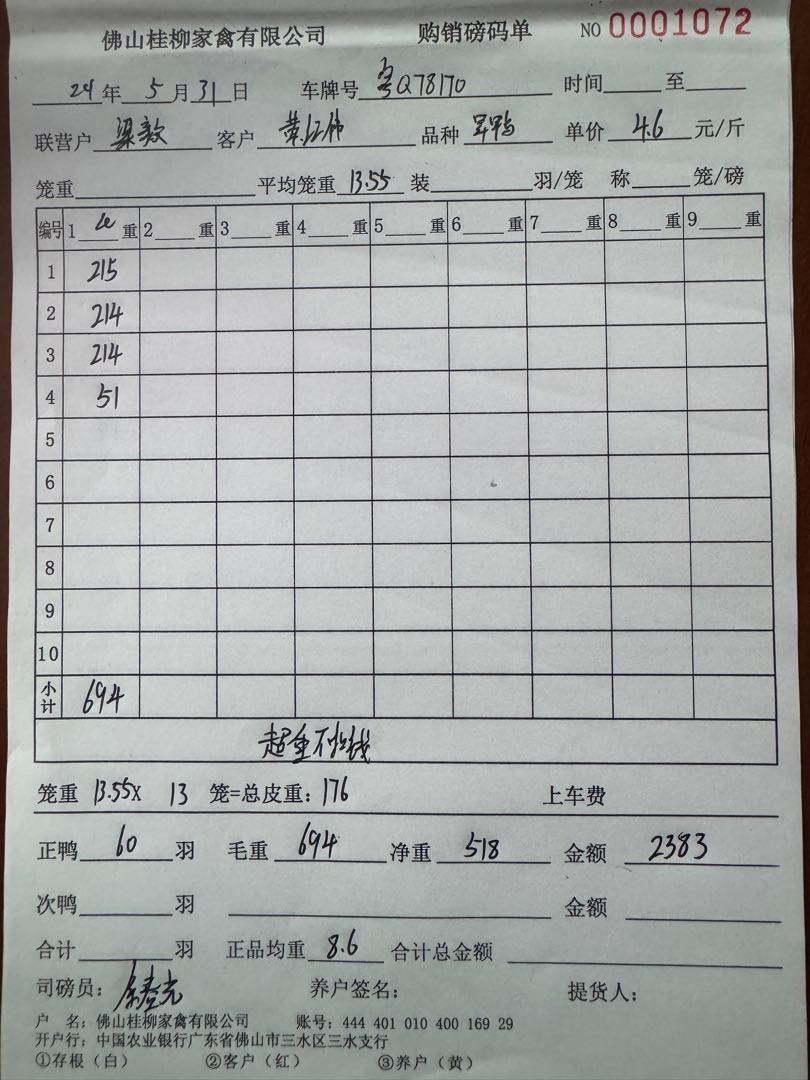 佛山桂柳家禽有限公司 购销磅码单 NO 0001072
24 年 5 月 31 日 车牌号 粤Q78170 时间 至
联营户 梁敦 客户 黄江伟 品种 旱鸭 单价 4.6 元/斤
笼重 平均笼重 13.55 装 羽/笼 称 笼/磅
编号 1 重 2 重 3 重 4 重 5 重 6 重 7 重 8 重 9 重
1 215
2 214
3 214
4 51
5
6
7
8
9
10
小计 694
超重不收钱
笼重 13.55X 13 笼=总皮重: 176 上车费
正鸭 60 羽 毛重 694 净重 518 金额 2383
次鸭 羽 金额
合计 羽 正品均重 8.6 合计总金额
司磅员: 养户签名: 提货人:
户 名: 佛山桂柳家禽有限公司 账号: 444 401 010 400 169 29
开户行: 中国农业银行广东省佛山市三水区三水支行
①存根（白） ②客户（红） ③养户（黄）